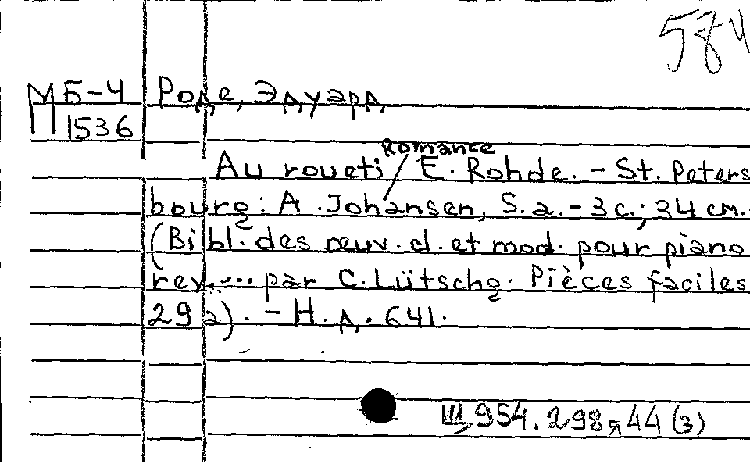 584
МБ-4 Роде, Эдуард
П 1536
Romance
Au roueti / E. Rohde. - St. Peters
bourg: A. Johansen, S. a. - 3 с.; 34 см. -
(Bibl. des œuv. cl. et mod. pour piano
rev. ... par C. Lütschg. Pièces faciles
29a). - Н. д. 641.
Щ954.298я44(3)